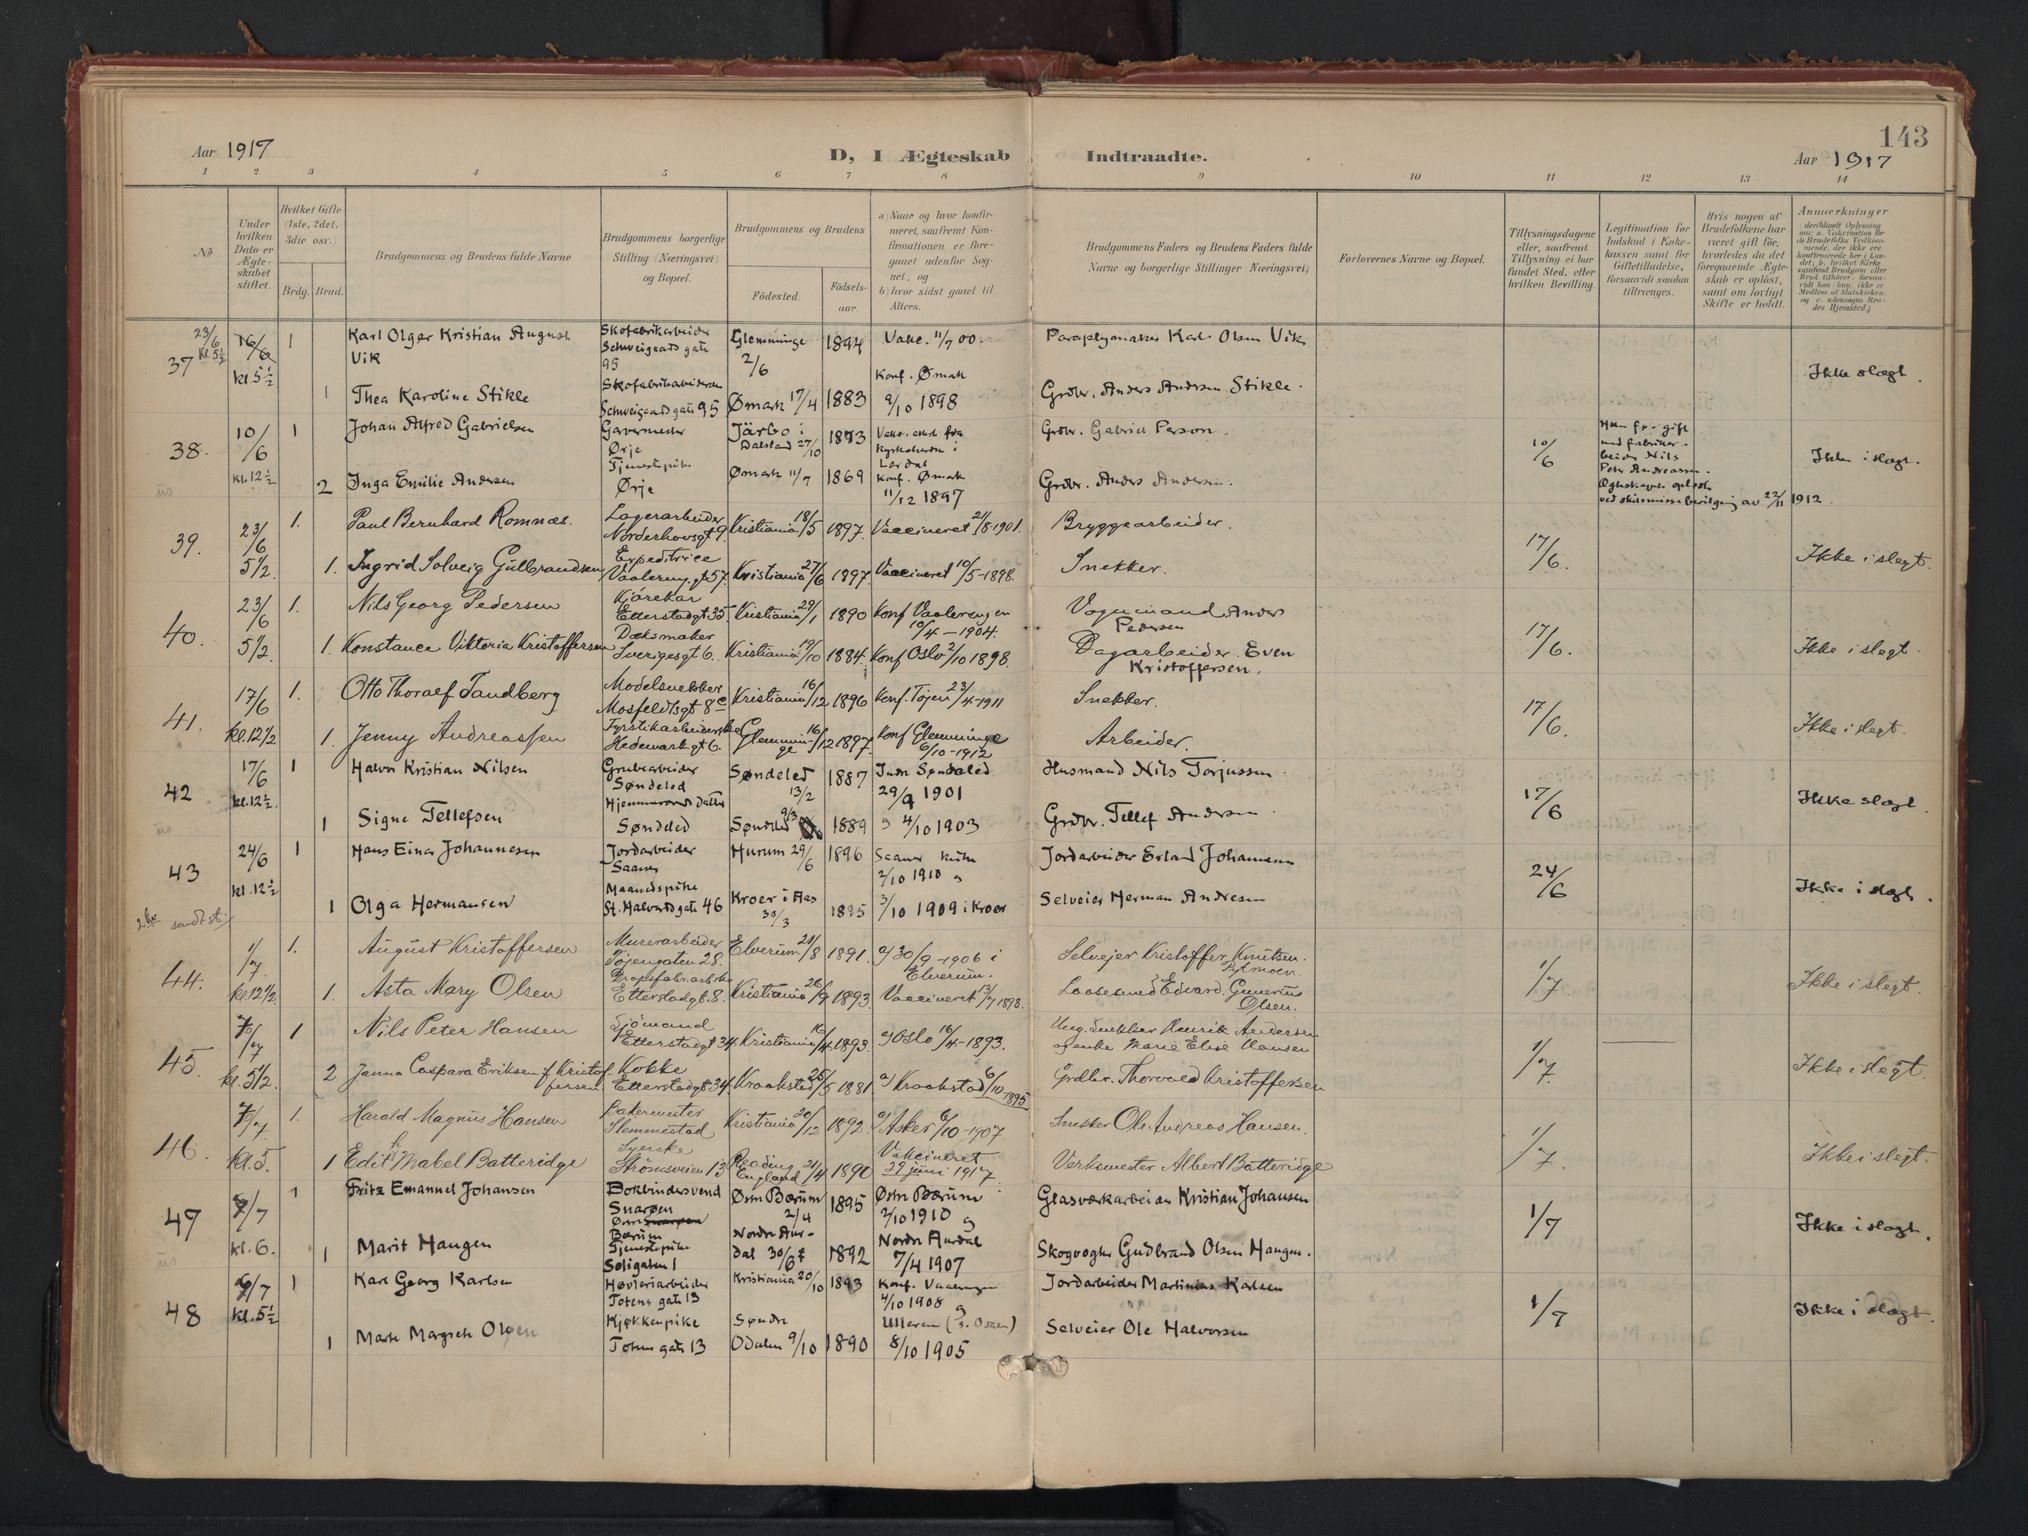 143
Aar 1917
D, I Ægteskab Indtraadte.
Aar 1917
1 2 3 4 5 6 7 8 9 10 11 12 13 14
No
Under hvilken Dato er Ægteskabet stiftet.
Hvilket Gifte (1ste, 2det, 3die osv.)
Brdg. Brud.
Brudgommens og Brudens fulde Navne
Brudgommens borgerlige Stilling (Næringsvei) og Bopæl.
Brudgommens og Brudens
Fødested. Fødselsaar.
a) Naar og hvor konfirmeret, saafremt Konfirmationen er foregaaet udenfor Sognet, og
b) hvor sidst gaaet til Alters.
Brudgommens Faders og Brudens Faders fulde Navne og borgerlige Stillinger Næringsvei)
Forlovernes Navne og Bopæl.
Tillysningsdagene eller, saafremt Tillysning ei har fundet Sted, efter hvilken Bevilling.
Legitimation for Indskud i Enkekassen samt for Giftetilladelse, forsaavidt saadan tiltrænges.
Hvis nogen af Brudefolkene har været gift før, hvorledes da det foregaaende Ægteskab er opløst, samt om lovligt Skifte er holdt.
Anmærkninger
37 23/6 kl. 5½ 16/6 kl. 5½
1 Karl Olgar Kristian August Vik Skofabrikarbeider Schweigaards gate 95 Glemminge 2/6 1894 Vakc. 11/7 00. Paraplymaker Karl Olsen Vik
1 Thea Karoline Stikle Schweigaards gate 95 Ømark 17/4 1883 Konf. Ømark 9/10 1898 Grdbr. Anders Andersen Stikle. Ikke slægt.
38. 10/6 kl. 12½
1 Johan Alfred Gabrielsen Garvermester Ørje Järbo i Dalsland 27/10 1873 Grdbr. Gabriel Person.
2 Inga Emilie Andersen Tjenestepike Ørje Ømark 11/7 1869 Konf. Ømark 11/12 1897 Grdbr. Anders Andersen. 10/6
Nils Peter Andreassen. 22/11 1912 Ikke i slægt.
39. 23/6 5½
1. Paul Bernhard Romnæs. Lagerarbeider Norderhovsgt 9. Kristiania 18/5 1897. Vaccineret 21/8 1901. Bryggearbeider.
1. Ingrid Solveig Gulbrandsen Expeditrice Vaalereng.gt 57. Kristiania 27/6 1897. Vaccineret 10/5-1898. Snekker. 17/6. Ikke i slegt.
40. 23/6 5½
1. Nils Georg Pedersen Kjørekar Etterstadgt 35. Kristiania 29/1 1890 Konf Vaalerengen 10/4 - 1904. Vognmand Anders Pedersen
1. Konstance Viktoria Kristoffersen Sverigesgt 6. Kristiania 19/10 1884. Konf Oslo 2/10 1898. Dagarbeider Even Kristoffersen. 17/6. Ikke i slegt.
41. 17/6 kl. 12½
1. Otto Thoralf Tandberg Modelsnekker Mosfeldtsgt 8 c Kristiania 16/12 1896 Konf. Tøjen 23/4-1911 Snekker.
1. Jenny Andreassen Fyrstikarbeiderske Hedemarkgt 6. Glemminge 16/12 1897. Konf Glemminge 6/10-1912 Arbeider. 17/6. Ikke i slegt.
42 17/6 kl. 12½
1 Halvor Kristian Nilsen Grubearbeider Søndeled Søndeled 13/2 1887 Indre Søndeled 29/9 1901 Husmand Nils Torjussen
1 Signe Tellefsen Hjemmeværende Datter Søndeled Søndeled 9/3 1889 4/10 1903 Grdbr. Tellef Andersen 17/6 Ikke slægt
43 24/6 kl. 12½
1 Hans Einar Johannesen Jordarbeider Saaner Hurum 29/6 1896 Saaner kirke 2/10 1910 Jordarbeider Erland Johannesen
1 Olga Hermansen Maanedspike St. Halvards gate 46 Kroer i Aas 30/3 1895 3/10 1909 i Kroer Selveier Herman Andresen 24/6 Ikke i slægt.
44. 1/7. kl. 12½
1. August Kristoffersen Murerarbeider Tøjengaten 28. Elverum 21/8 1891. a) 30/9-1906 i Elverum. Selvejer Kristoffer Knutsen
1. Asta Mary Olsen Etterstadgt. 8. Kristiania 26/9 1893. Vaccineret 13/7 1898. Laasesmed Edvard Gunerius Olsen. 1/7. Ikke i slegt.
45. 7/7 kl. 5½
1 Nils Peter Hansen Sjømand Etterstadgt 34. Kristiania 16/4 1893. a) Oslo 16/4-1893. Ung. Snekker Henrik Andersen og enke Marie Elise Hansen
2 Janna Caspara Eriksen f. Kristoffersen Kokke Etterstadgt 34. Kraakstad 25/5 1881. a) Kraakstad 6/10-1895 Grdbr. Thorvald Kristoffersen 1/7. Ikke i slegt.
46. 7/7. kl. 5.
1. Harald Magnus Hansen Slemmestad Kristiania 20/12 1892. a) Asker 6/10-1907. Snekker Ole Andreas Hansen.
1 Edith Mabel Batteridge Syerske Strömsveien 13 Reading England 21/4 1890 Vakcineret 29 juni 1917. Verksmester Albert Batteridge 1/7. Ikke i slegt.
47 8/7 kl. 6.
1 Fritz Emanuel Johansen Bokbindersvend Snarøen Bærum Østre Bærum 2/4 1895 Østre Bærum 2/10 1910 Glasværkarbeider Kristian Johansen
1 Marit Haugen Tjenestepike Soligaten 1 Nordre Aurdal 30/6 1892 Nordre Aurdal 7/4 1907 Skogvogter Gudbrand Olsen Haugen. 1/7 Ikke i slægt.
48 8/7 kl. 5½
1 Karl Georg Karlsen Høvleriarbeider Totens gate 13 Kristiania 20/10 1893 Konf. Vaalerengen 4/10 1908 Jordarbeider Martinius Karlsen
1 Marte Margrete Olsen Kjøkkenpike Totens gate 13 Søndre Odalen 9/10 1890 Ulleren (S. Odalen) 8/10 1905 Selveier Ole Halvorsen 1/7 Ikke i slægt.